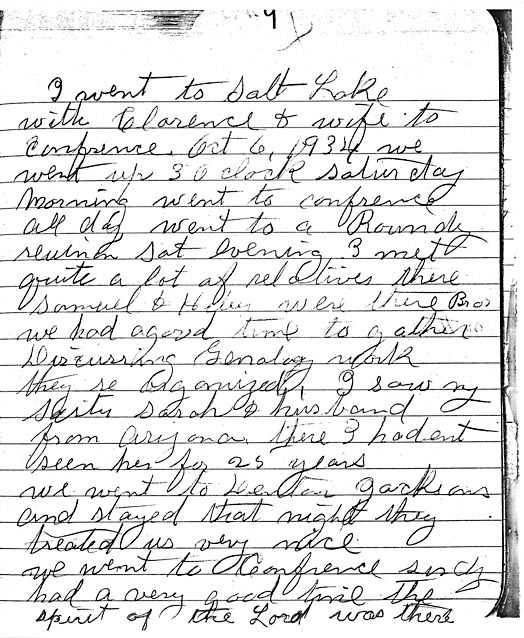 4
I went to Salt Lake
with Clarence & wife to
Confrence. Oct 6, 1934 we
went up 3 O clock Saturday
morning went to confrence
all day went to a Roundy
reuinon Sat evening I met
quite a lot of relitives there
Samuel & were there Bros
we had a good time to gather
Discussing Genalogy work
they re Organized, I saw my
Sarah & husband
from Aryona, there I hadent
seen her for 25 years
we went to Jacksons
and stayed that night they
treated us very nice
we went to Confrence
had a very good time the
spirit of the Lord was there